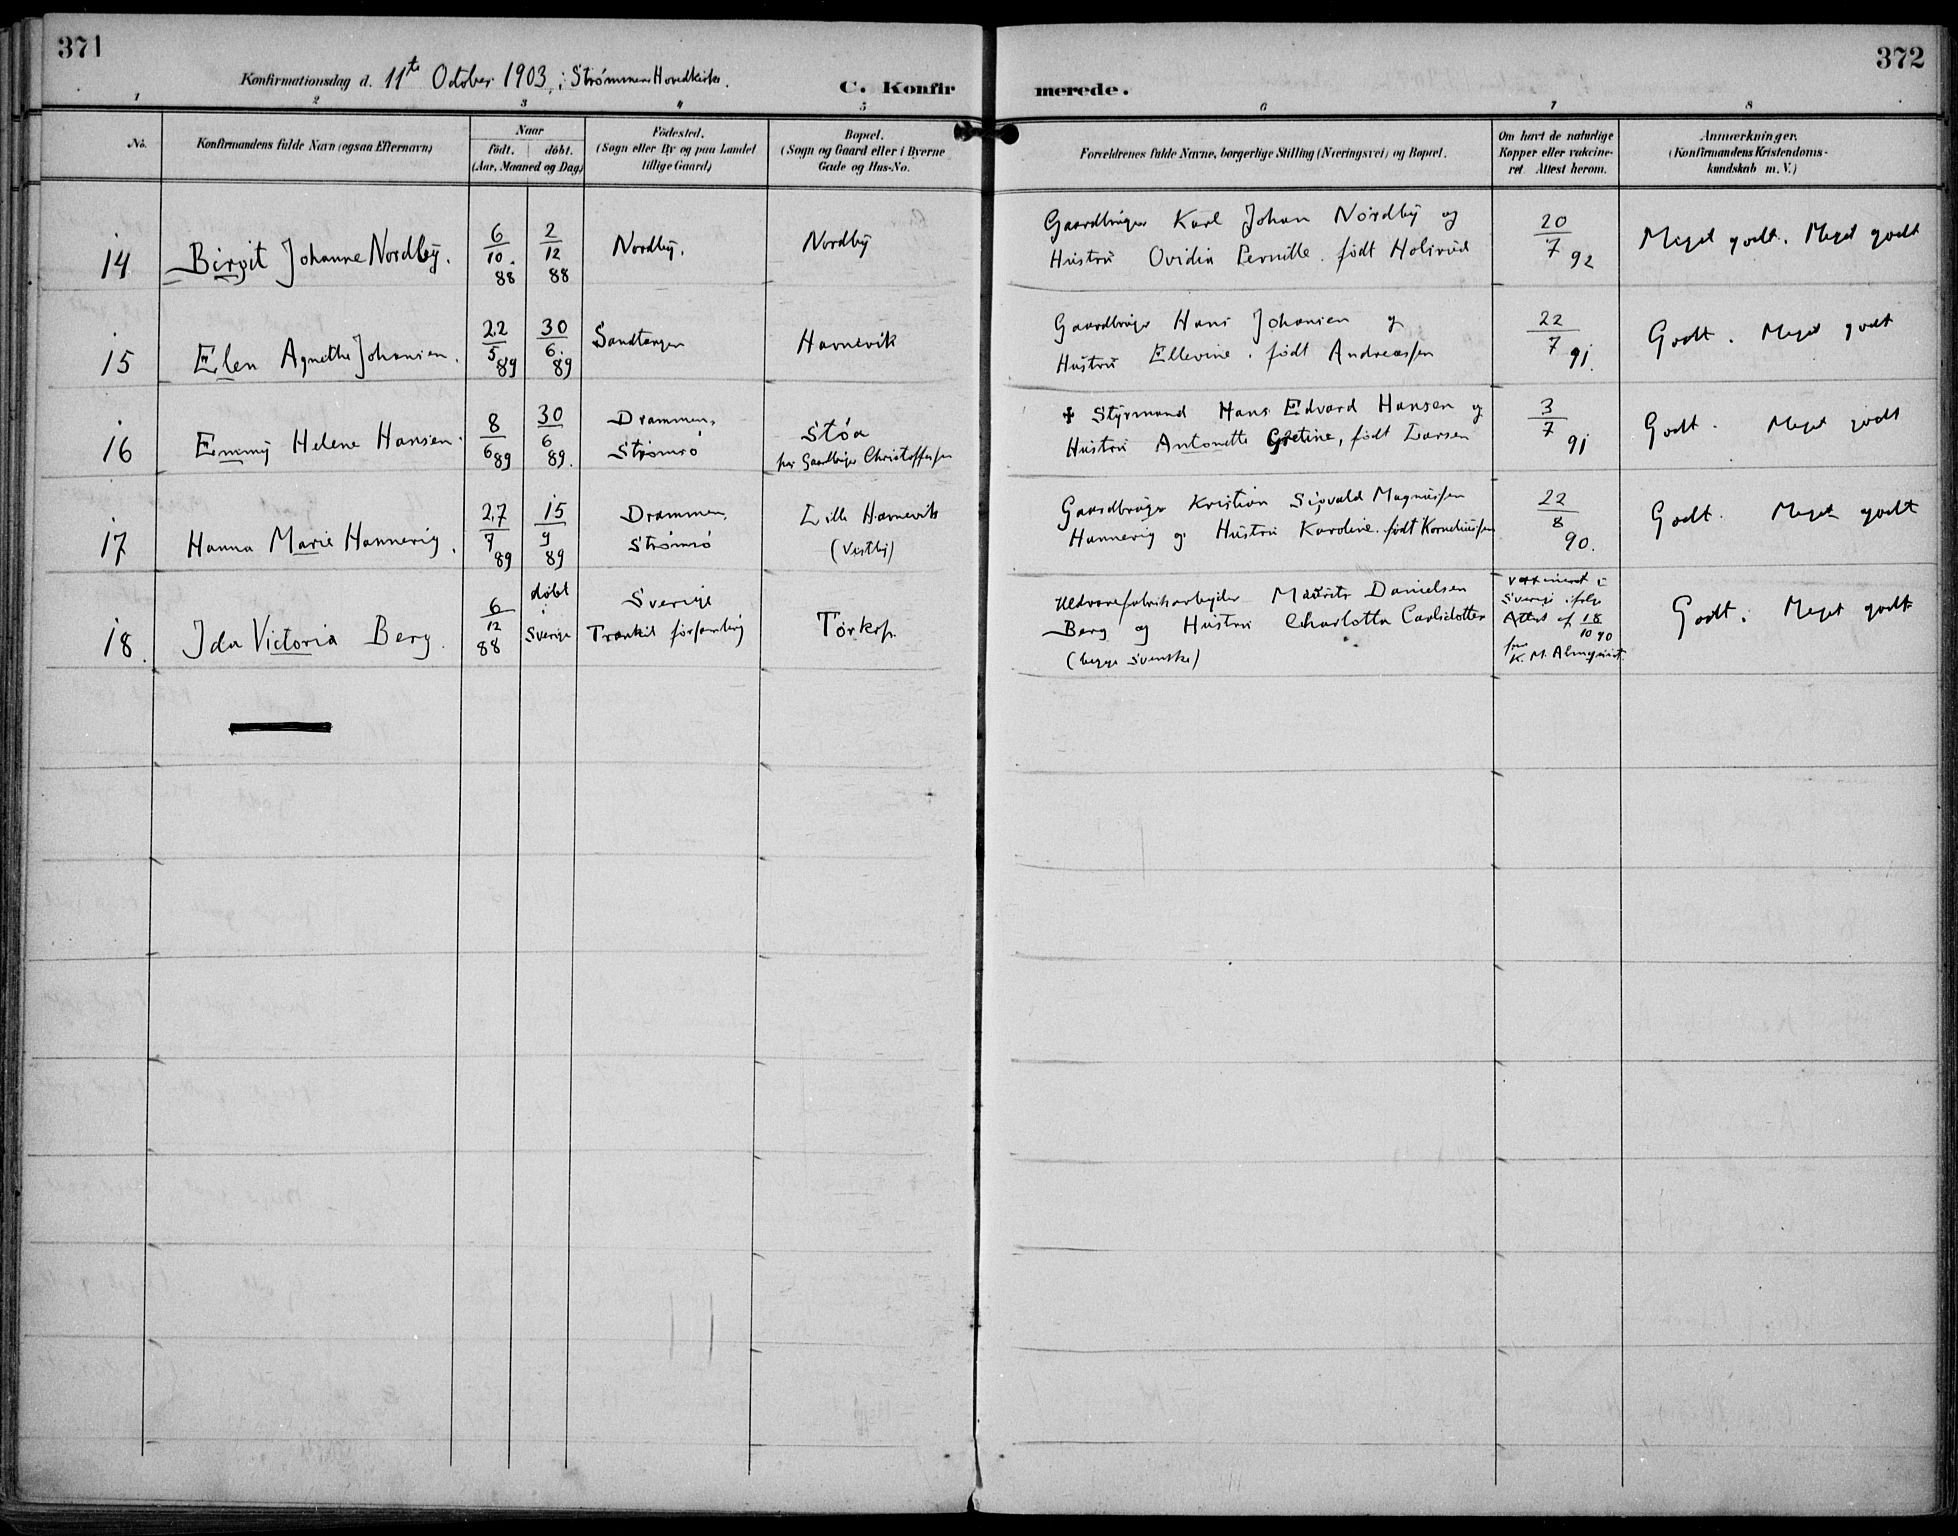 371
372
Konfirmationsdag d. 11te October 1903, i Strømmen Hovedkirke.
C. Konfirmerede.
1 2 3 4 5 6 7 8
No.
Konfirmandens fulde Navn (ogsaa Efternavn)
Naar
født. døbt.
(Aar, Maaned og Dag)
Fødested.
(Sogn eller By og paa Landet
tillige Gaard)
Bopæl.
(Sogn og Gaard eller i Byerne
Gade og Hus-No.
Forældrenes fulde Navne, borgerlige Stilling (Næringsvei) og Bopæl.
Om havt de naturlige
Kopper eller vakcine-
ret. Attest herom.
Anmærkninger.
(Konfirmandens Kristendoms-
kundskab m. V.)
14 Birgit Johanne Nordby. 6/10. 88 2/12 88 Nordby. Nordby
Gaardbruger Karl Johan Nordby og
Hustru Ovidia Pernille. født Holirud
20/7 92 Meget godt. Meget godt
15 Elen Agnethe Johansen. 22/5 89 30/6. 89 Sandtangen Havnevik
Gaardbruger Hans Johansen og
Hustru Ellevine. født Andreassen
22/7 91. Godt. Meget godt
16 Emmy Helene Hansen. 8/6 89 30/6 89. Drammen,
Strømsø
Støa
hos Gaardbruger Christoffersen
✝ Styrmand Hans Edvard Hansen og
Hustru Antonette Gretine, født Larsen
3/7 91 Godt. Meget godt
17 Hanna Marie Hannevig. 27/7 89 15/9 89 Drammen,
Strømsø
Lille Havnevik
(Vestby)
Gaardbruger Kristian Sigvald Magnussen
Hannevig og Hustru Karoline. født Korneliussen
22/8 90. Godt. Meget godt
18. Ida Victoria Berg. 6/12 88 døbt
i
Sverige
Sverige
Trankil församling
Torkop.
Uldvarefabrikarbeyder Mauritz Danielsen
Berg og Hustru Charlotta Carlsdotter
(begge Svenske)
vaccineret i
Sverige ifølge
Attest af 18/10 90
fra
K. M. Almqvist.
Godt. Meget godt